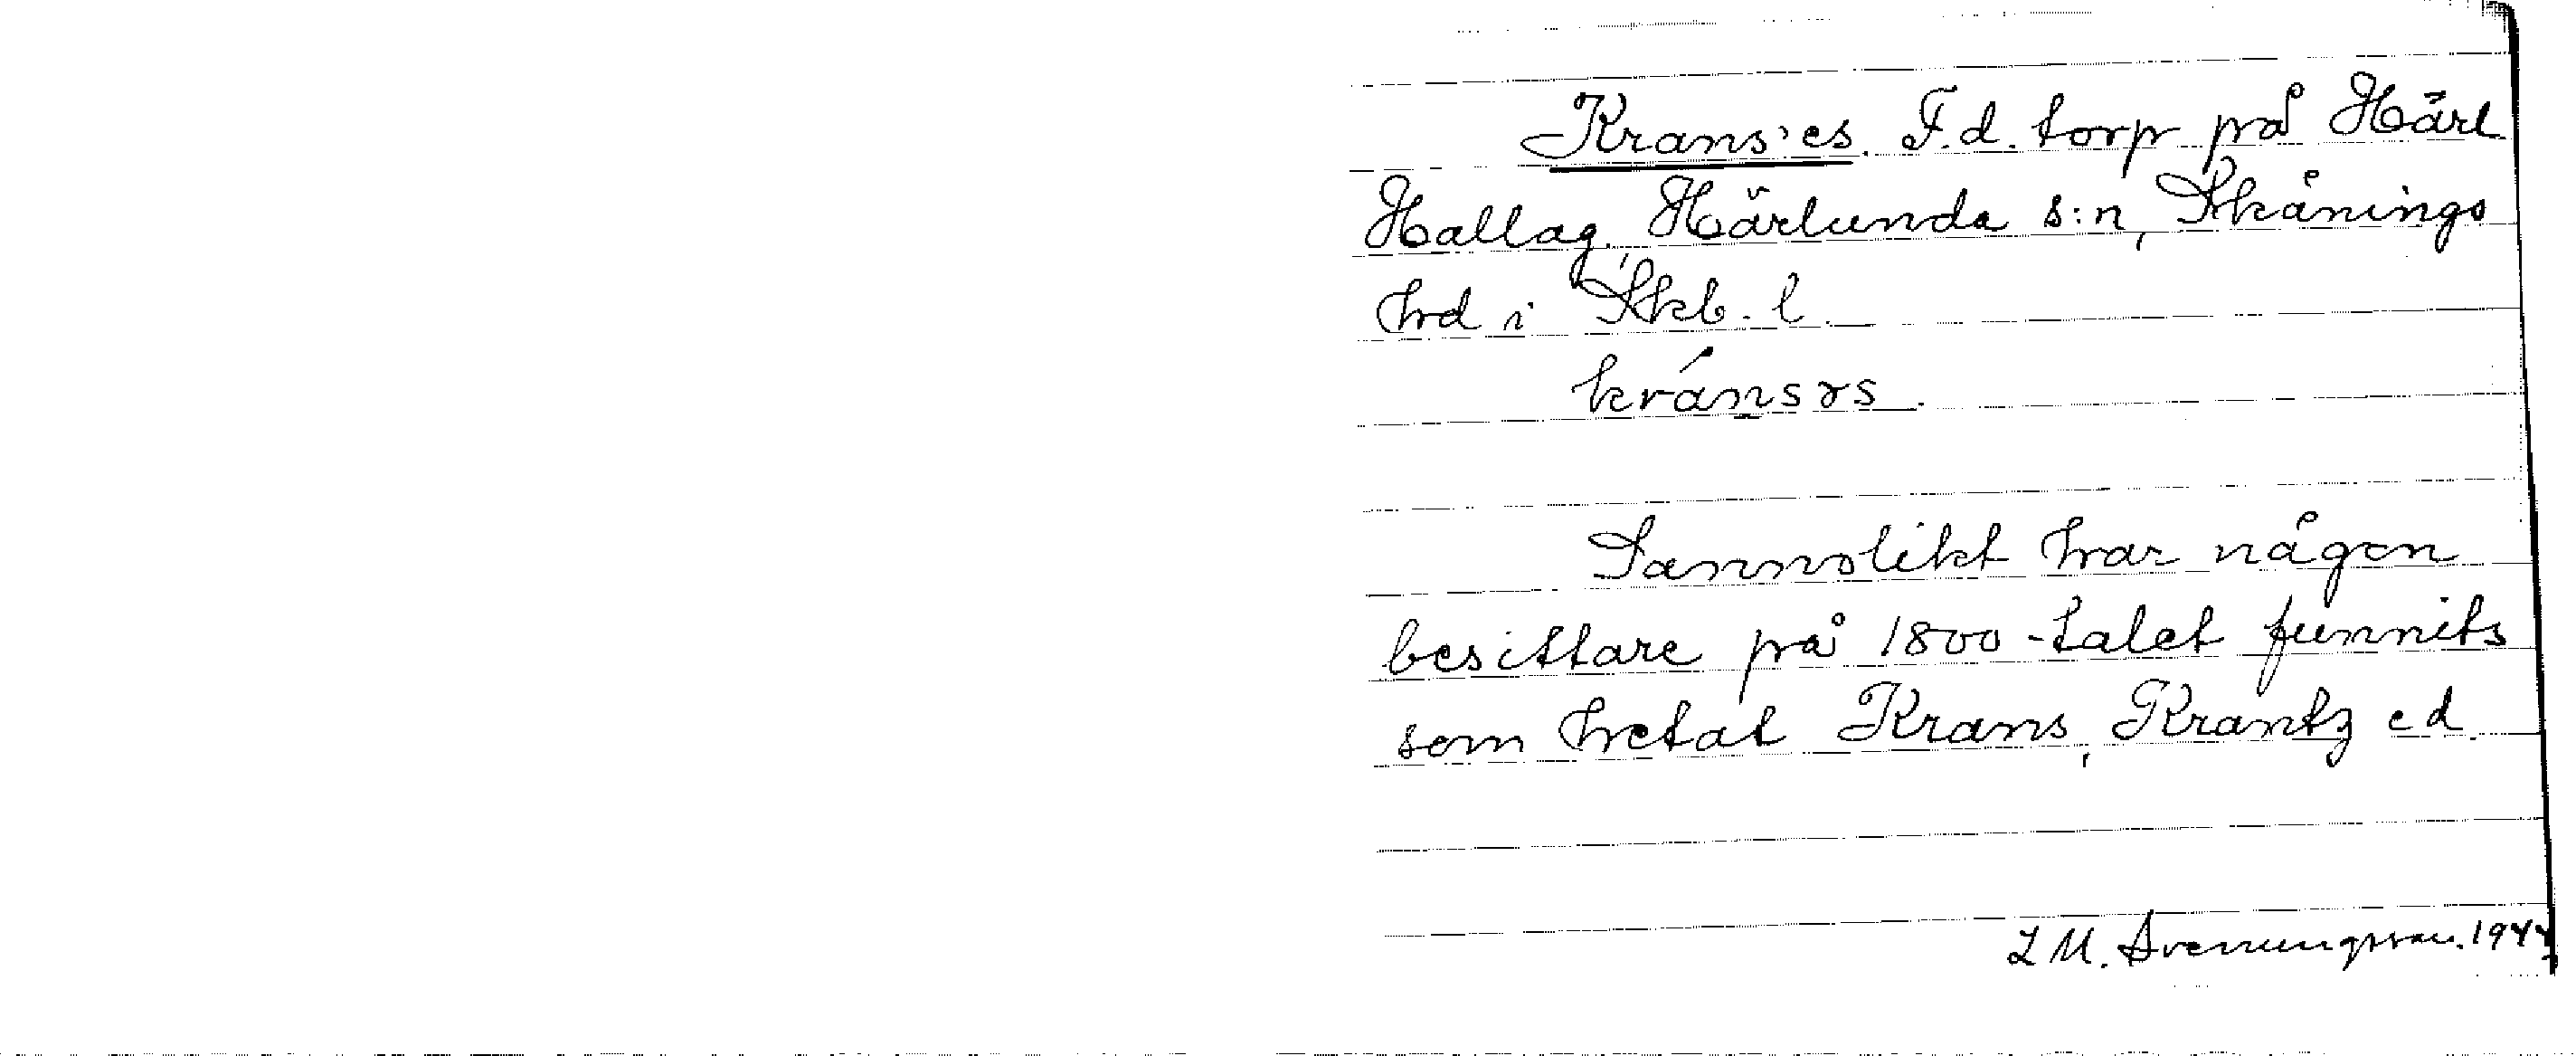 Krans'es. F.d. torp på Härl
Hallag, Härlunda s:n, Skånings
hrd i Skb. l.
kránsɤs.
Sannolikt har någon
besittare på 1800-talet funnits
som hetat Krans, Krantz e d.
L M. Svenungsson. 1944